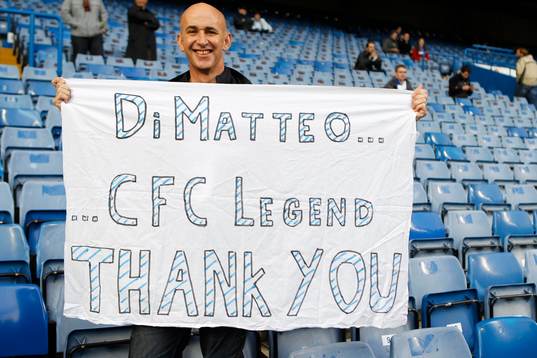 DiMatteo...
...CFC Legend
THANK YOU